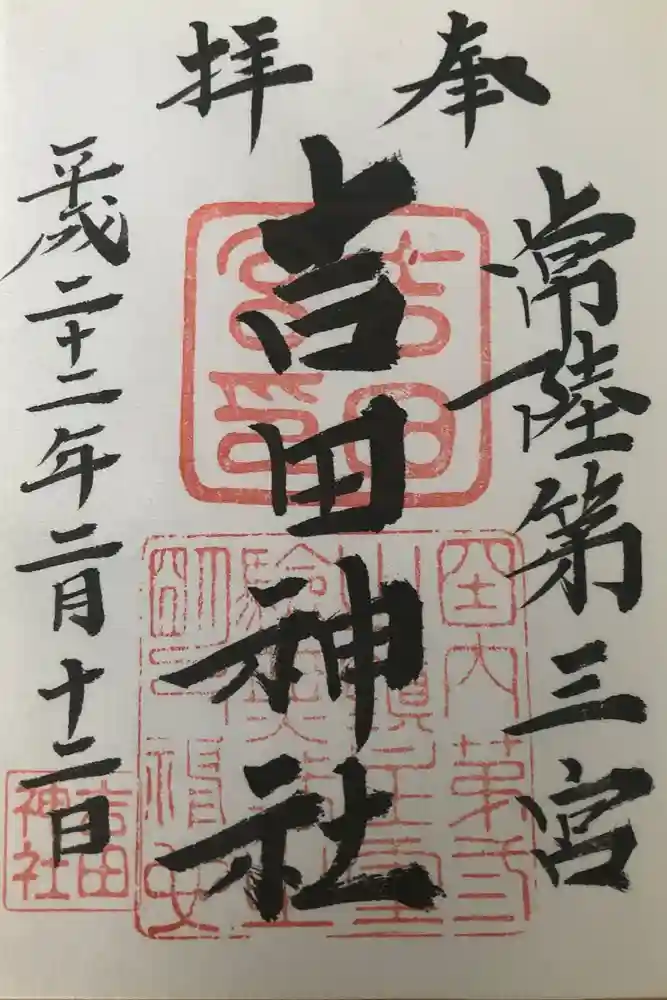 奉拝
常陸第三宮
吉田神社
平成二十二年二月十二日
吉田
神社